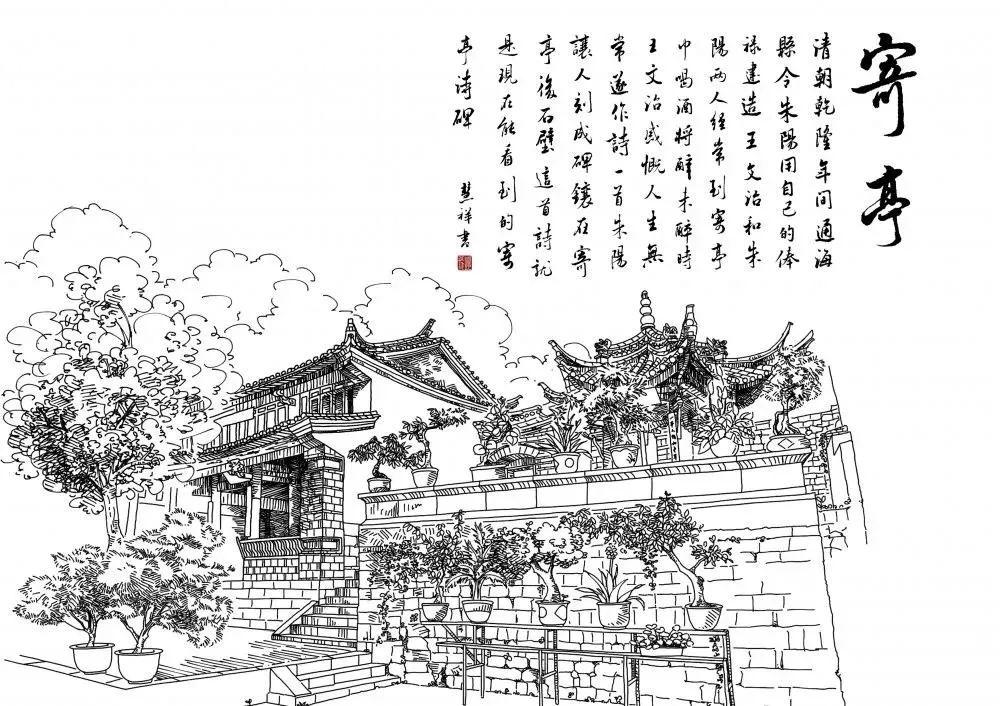 寄亭
清朝乾隆年间通海
縣令朱陽用自己的俸
禄建造王文治和朱
陽两人经常到寄亭
中喝酒将醉未醉時
王文治感慨人生無
常遂作詩一首朱陽
讓人刻成碑鑲在寄
亭後石壁這首詩就
是現在能看到的寄
亭诗碑
慧祥書